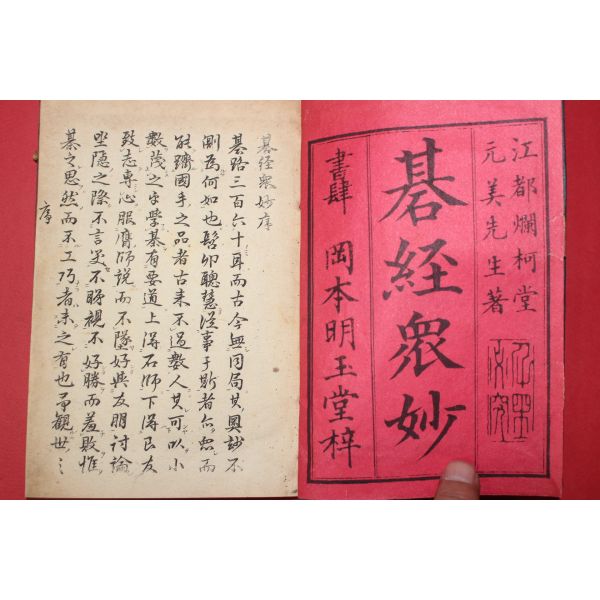 江都爛柯堂
元美先生著
碁経衆妙
書肆 岡本明玉堂梓
碁経衆妙序
碁路三百六十耳而古今無同局其奥妙不
測為何如也髫丱聰慧從事于斯者亦衆而
能躋國手之品者古来不過數人其可以小
數蔑之乎學碁有要道上得石師下得良友
致志專心服膺師説而不墜好與友朋討論
坐隠之際不言笑不睇視不好勝而羞敗惟
碁之思然而不工巧者未之有也予観世之
序